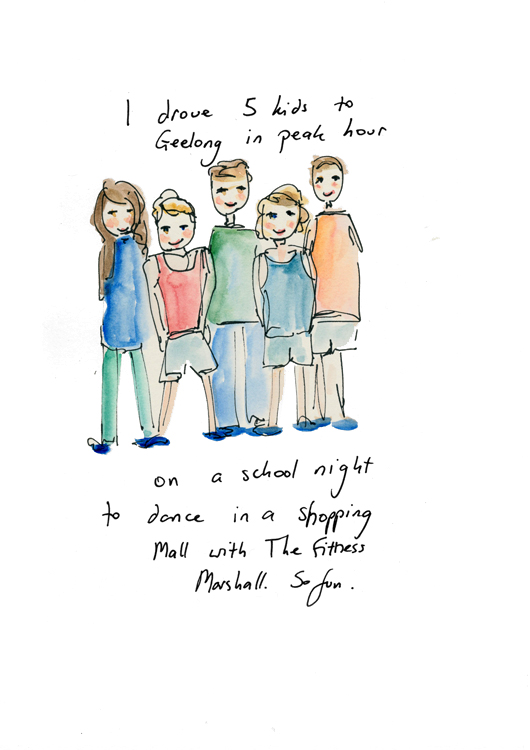 I drove 5 kids to
Geelong in peak hour
on a school night
to dance in a shopping
Mall with The Fitness
Marshall. So fun.